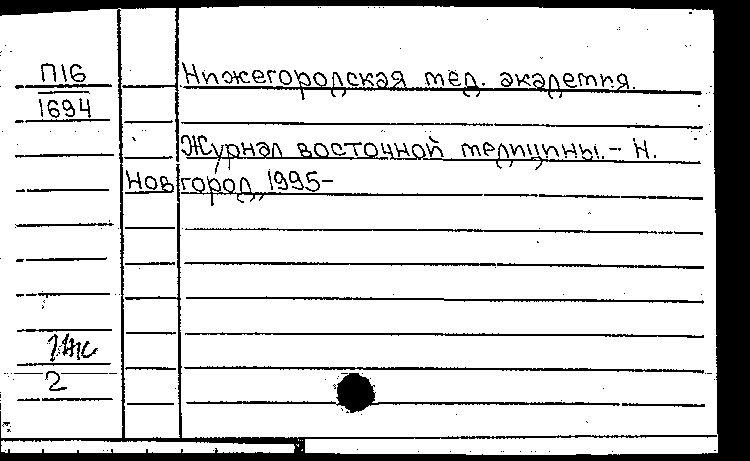 П16
Нижегородская мед. академия.
1694
Журнал восточной медицины. - Н.
Новгород, 1995-
2